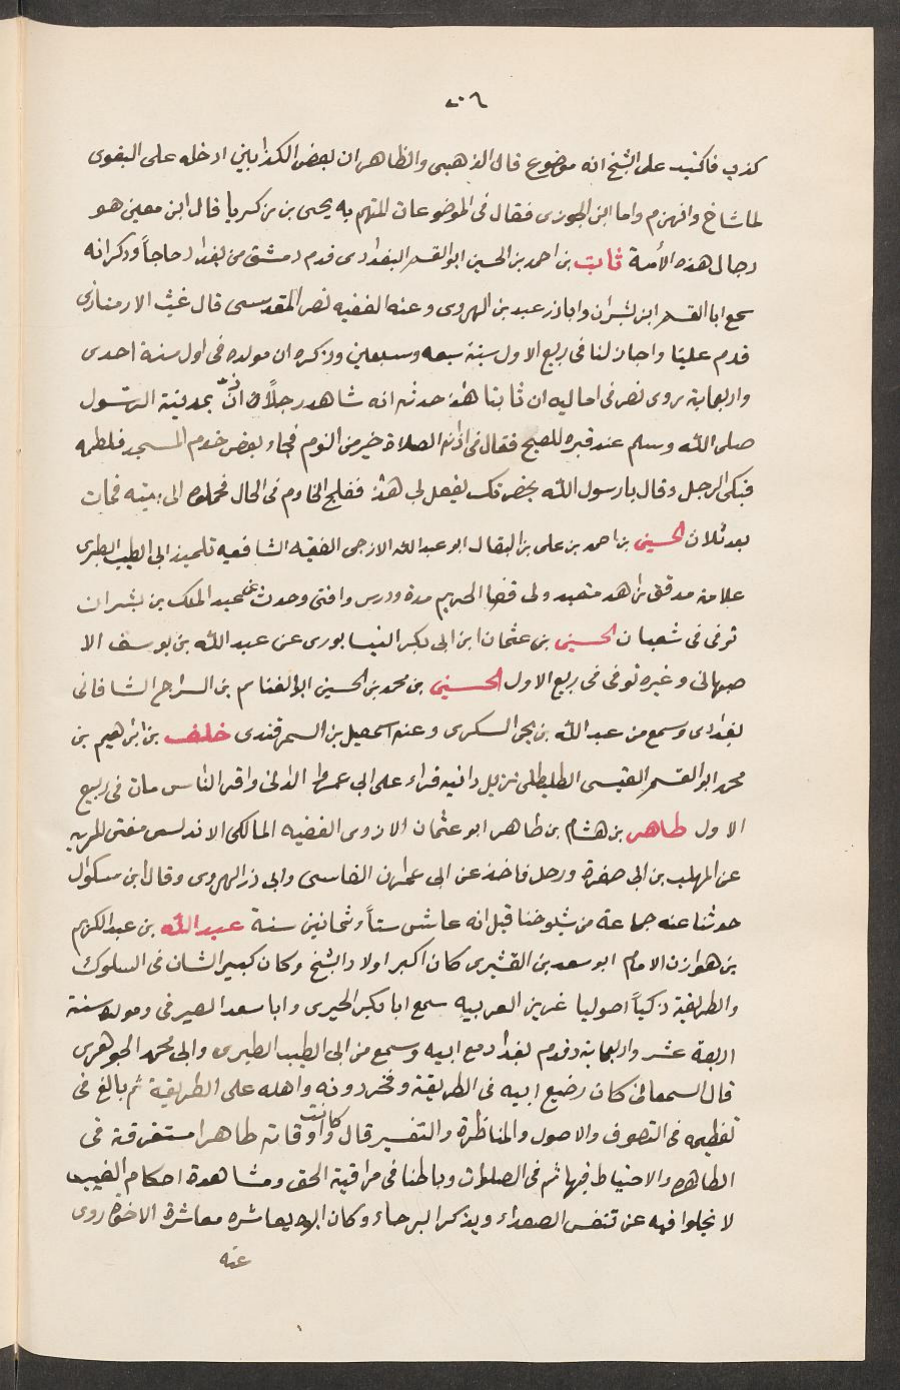 ٢٠٦
كذب فاكتب على الشيخ انه موضوع قال الذهبى والظاهر ان بعض الكذابين ادخله على البغوى
لما شاخ وانهزم واما ابن الجوزى فقال فى الموضوعات المتهم به يحيى بن زكريا قال ابن معين هو
دجال هذه الأمة ثابت بن احمد بن الحسين ابو القسم البغدادى قدم دمشق من بغداد حاجاً وذكر انه
سمع ابا القسم ابن بشران وابا ذر عبد بن الهروى وعنه الفقيه نصر المقدسى قال غيث الارمنازى
قدم علينا واجاز لنا فى ربيع الاول سنة سبعه وسبعين وذكره ان مولده فى اول سنة احدى
واربعماية روى نصر فى اماليه ان ثابتا هذا حدثه انه شاهد رجلاً اذّن بمدينة الرسول
صلى الله وسلم عند قبره للصبح فقال فى اذانه الصلاة خير من النوم فجاء بعض خدم المسجد فلطمه
فبكى الرجل وقال يا رسول الله بحضرتك يفعل بى هذا ففلج الخادم فى الحال فحملوه الى بيته فمات
بعد ثلاث الحسين بن احمد بن على بن البقال ابو عبد الله الازجى الفقيه الشافعيه تلميذ ابى الطيب الطبرى
علامة مدقق زاهد متعبد ولى قضا الحريم مدة ودرس وافتى وحدث عن عبد الملك بن بشران
توفى فى شعبان الحسين بن عثمان ابن ابى بكر النيسابورى عن عبد الله بن يوسف الا
صبهانى وغيره توفى فى ربيع الاول الحسين بن محمد بن الحسين ابو الغنائم بن السراج الشاقانى
بغدادى وسمع من عبد الله بن يحيى السكرى وعنه اسمعيل بن السمرقندى خلف بن ابرهيم بن
محمد ابو القسم القيسى الطليطلى نزيل دانيه قراء على ابى عمرو الدانى واقرا الناس مات فى ربيع
الاول طاهر بن هشام بن طاهر ابو عثمان الازدى الفقيه المالكى الاندلسى مفتى المريه
عن المهلب بن ابى صفرة ورحل فاخذ عن ابى عمران الفاسى وابى ذر الهروى وقال ابن بسكوال
حدثنا عنه جماعة من شيوخنا قيل انه عاش ستاً وثمانين سنة عبد الله بن عبد الكريم
بن هوازن الامام ابو سعد بن القشيرى كان اكبر اولاد الشيخ وكان كبير الشان فى السلوك
والطريقة ذكياً اصوليا غزير العربيه سمع ابا بكر الحيرى وابا سعد الصيرفى ومولده سنة
اربعة عشر واربعماية وقدم بغداد مع ابيه وسمع من ابى الطيب الطبرى وابى محمد الجوهرى
قال السمعانى كان رضيع ابيه فى الطريقة وفخر ذويه واهله على الطريقة ثم بالغ فى
تعظيمه فى التصوف والاصول والمناظرة والتفسير قال وكانت اوقاته طاهرا مستغرقة فى
الطاهره والاحتياط فيها ثم فى الصلوات وباطنا فى مراقبة الحق ومشاهدة احكام الغيب
لا نجلوا فيه عن تنفس الصعداء ويذكر البرحاء وكان ابوه يعاشره معاشرة الاخوة روى
عنه